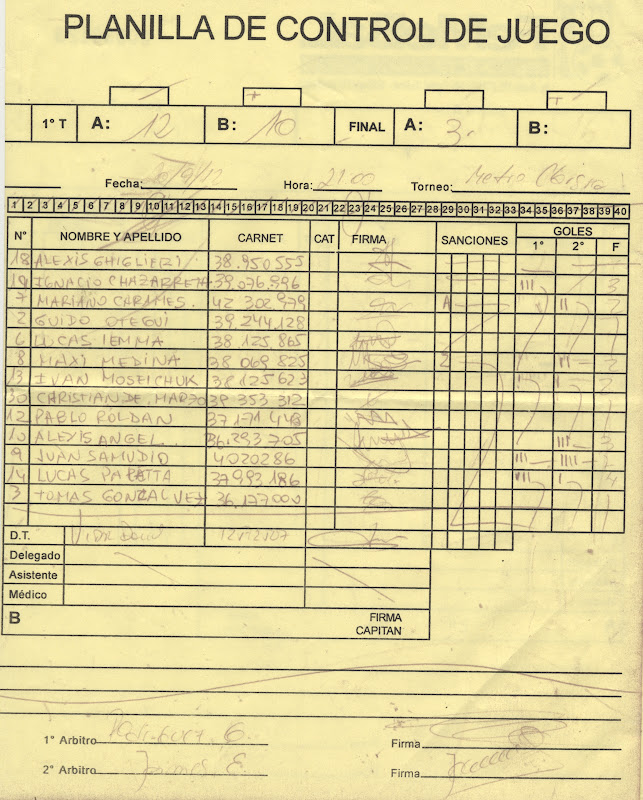 PLANILLA DE CONTROL DE JUEGO
1° T A: 12 B: 10 FINAL A: 3. B:
Fecha: /9/12 Hora: 21:00 Torneo: Metro
1 2 3 4 5 6 7 8 9 10 11 12 13 14 15 16 17 18 19 20 21 22 23 24 25 26 27 28 29 30 31 32 33 34 35 36 37 38 39 40
N° NOMBRE Y APELLIDO CARNET CAT FIRMA SANCIONES GOLES
1° 2° F
18 ALEXIS GHIGLIERI 38.950.555
19 IGNACIO CHAZARRETA 39.076.596 III 3
7 MARIANO 42 302.979 A II 2
2 GUIDO OTEGUI 39 244.128
6 LUCAS IEMMA 38 125 865
8 MAXI MEDINA 38 069 825 2 II 2
13 IVAN MOSEICHUK 38 125 623 I I 2
30 CHRISTIAN DE MARZO 39 353 312
12 PABLO ROLDAN 37 171 448
10 ALEXIS ANGEL 36.293 705 III 3
9 JUAN SAMUDIO 4020286 III IIII
14 LUCAS 37993.186 III I 4
3 TOMAS GONZALVEZ 36.177000
D.T.
Delegado
Asistente
Médico
B FIRMA
CAPITAN
1° Arbitro Firma
2° Arbitro Firma